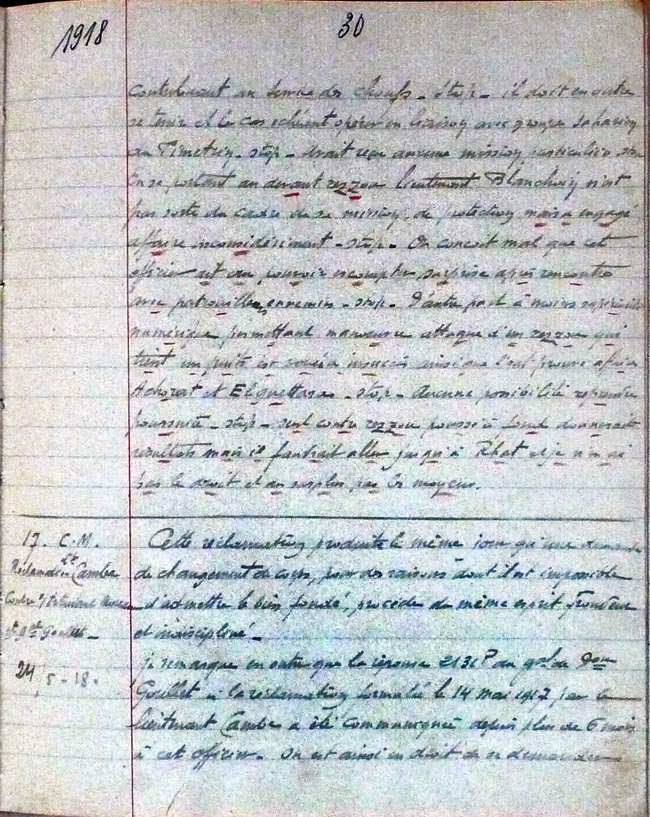 1918
30
contribuant au service des choufs - Stop - il doit en outre
se tenir et le cas échéant opérer en liaison avec groupe saharien
au Timetrin - stop - avait reçu aucune mission particulière stop
En se portant au devant rezzou lieutenant Blanchuin n'est
pas sorti du cadre de sa mission de protection mais a engagé
affaire inconsidérément - stop - On conçoit mal que cet
officier ait cru pouvoir escompter surprise après rencontre
avec patrouilles ennemies - stop - D'autre part à moins supériorité
numérique permettant manoeuvre attaque d'un rezzou qui
tient un puits est vouée à insuccès ainsi que l'ont prouvé affaires
Achorat et El Guettara - stop - Aucune possibilité reprendre
poursuite - stop - seul contre rezzou poussé à fond donnerait
résultats mais il faudrait aller jusqu'à et je n'en ai
pas le droit et au surplus pas les moyens.
17. C.M.
Réclamation Lt Cambe
Contre
Gl Goullet -
24 5-18.
Cette réclamation produite le même jour qu'une demande
de changement de corps, pour des raisons dont il est impossible
d'admettre le bien fondé, procède du même esprit frondeur
et indiscipliné.
Je remarque en outre que la réponse 2131P du gal de Don
Goullet à la réclamation formulée le 14 mai 1917 par le
lieutenant Cambe a été communiquée depuis plus de 6 mois
à cet officier. On est ainsi en droit de se demander